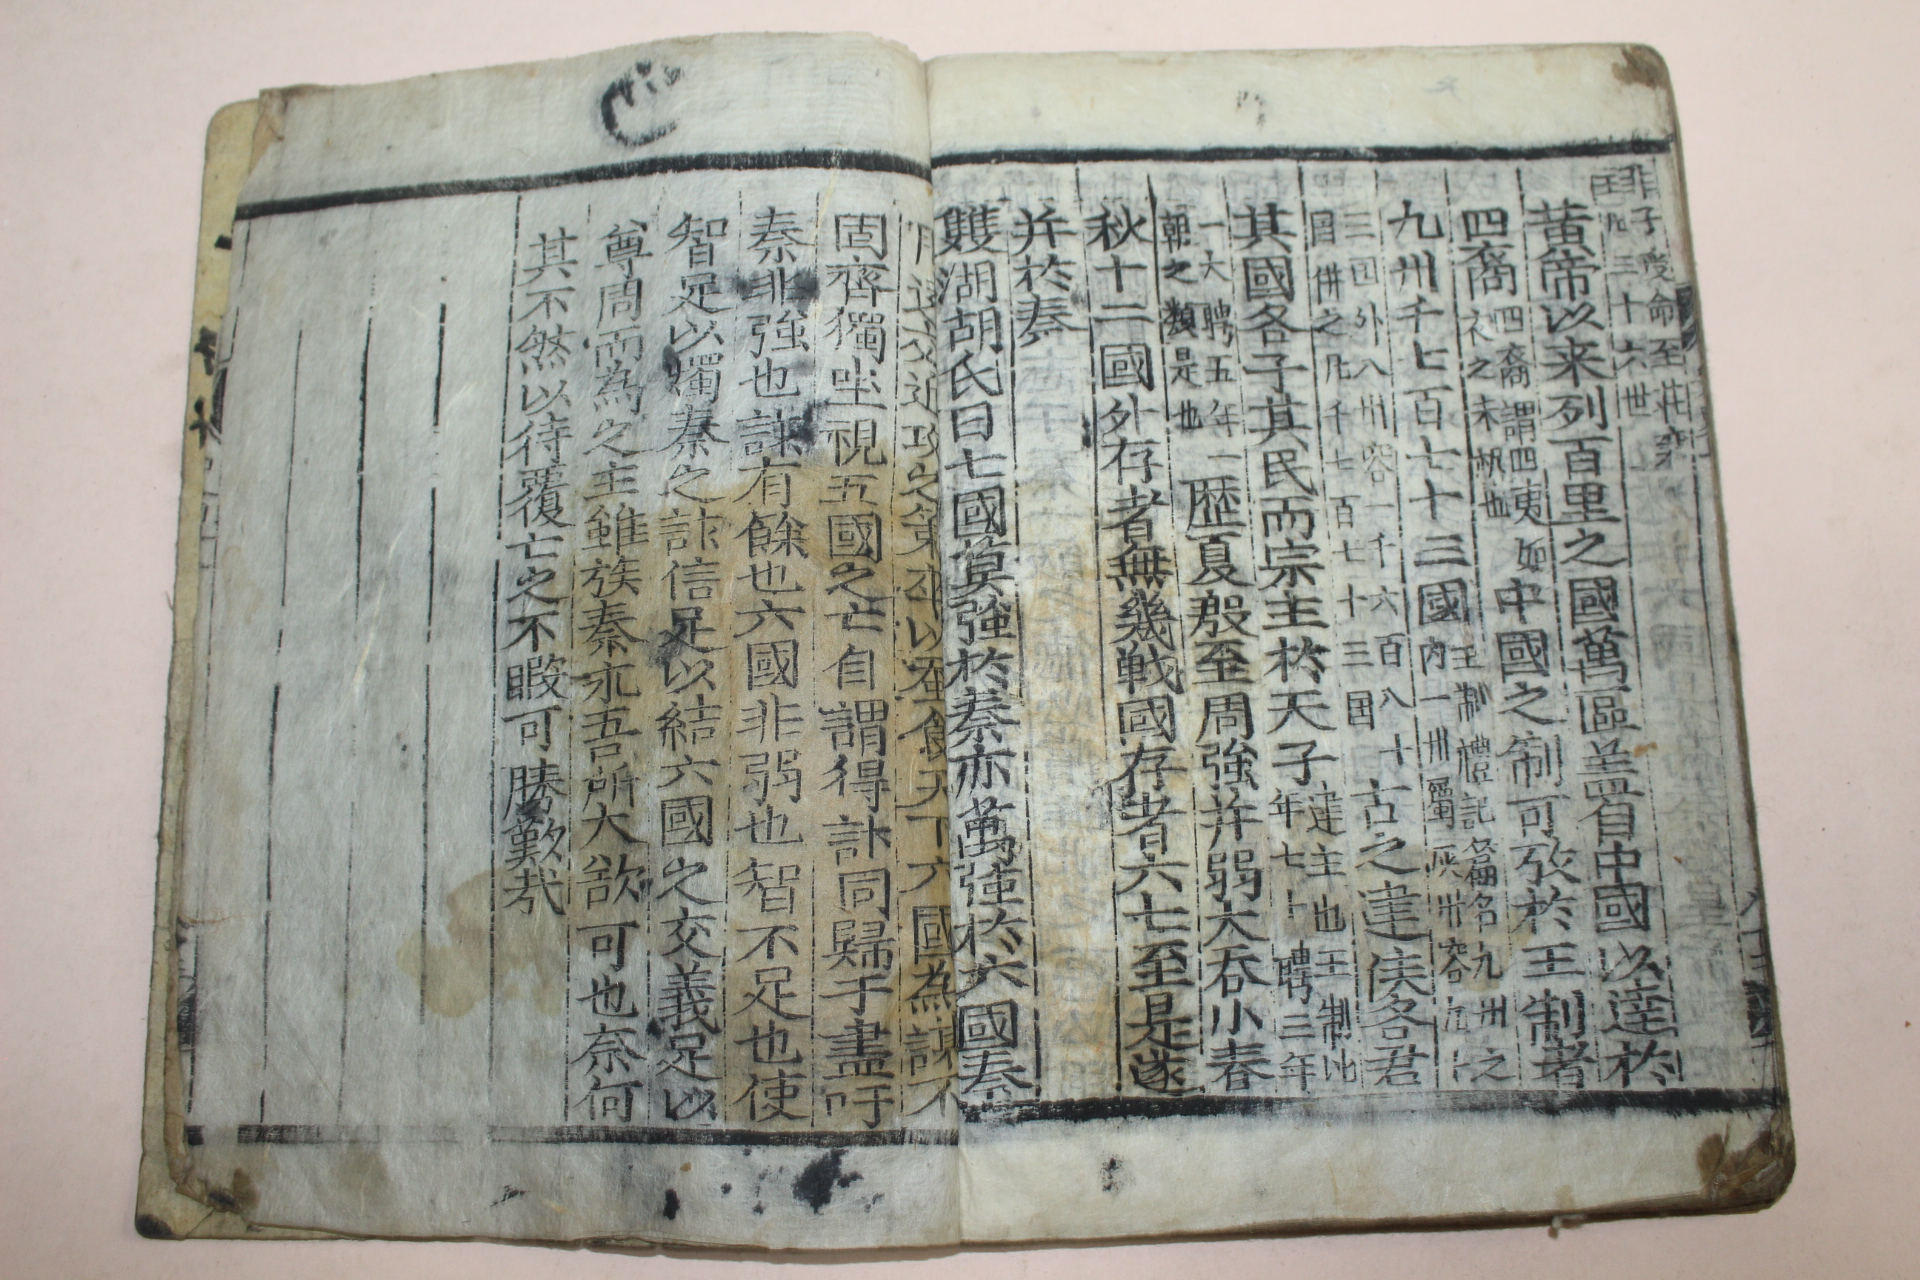 非子受命至莊襄
国凡三十六世
黄帝以来列百里之國萬區盖自中國以達於
四裔四裔謂四夷如
衣之末帆也
中國之制可攷於王制者
九州千七百七十三國王制禮記篇名九州之
内一州屬灰卅容九十
三囯外八州容一千六百八十
囯併之凡千七百七十三囯
古之建侯各君
其國各子其民而宗主於天子建主也王制比
年七十聘三年
一大聘五年一
朝之類是也
歴夏殷至周強并弱大呑小春
秋十二國外存者無幾戦國存者六七至是遂
并於秦
雙湖胡氏曰七國莫強於秦亦莫強於六國秦
下遠交近攻之策卒以蚕食天下六國為謀不
固齊獨坐視五國之亡自謂得計同歸于盡吁
秦非強也謀有餘也六國非弱也智不足也使
智足以燭秦之詐信足以結六國之交義足以
尊周而為之主雖族秦永吾所大欲可也奈何
其不然以待覆亡之不暇可勝歎㦲